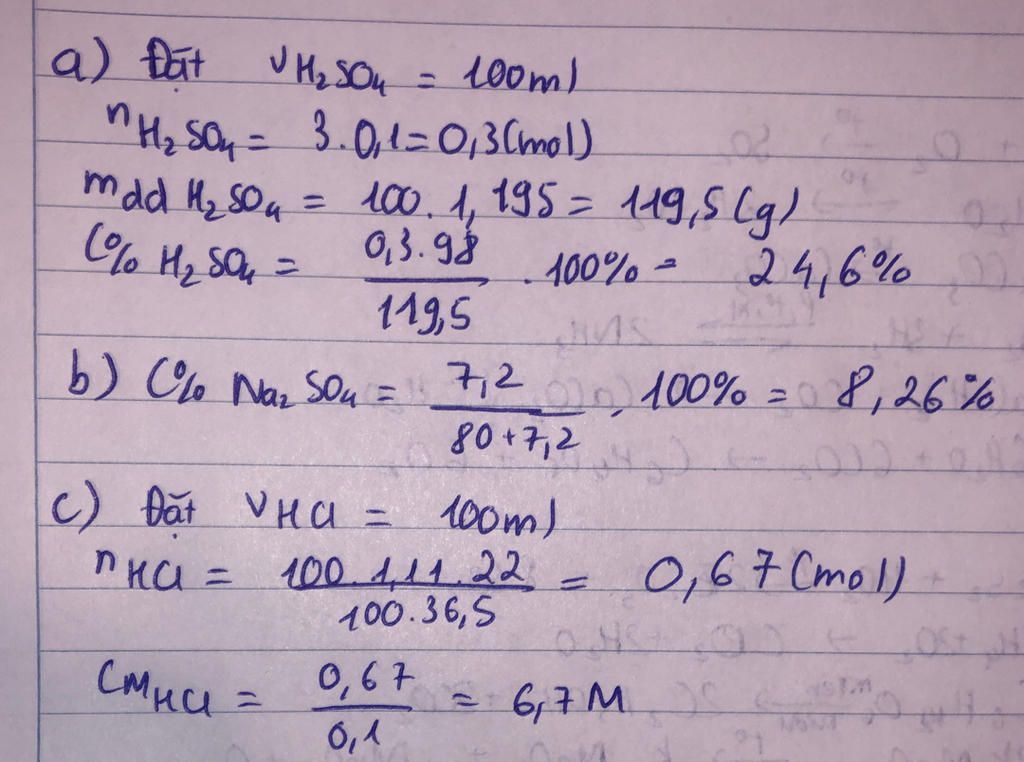 a) Đặt VH₂SO₄ = 100ml
nH₂SO₄ = 3.0,1 = 0,3(mol)
mdd H₂SO₄ = 100.1,195 = 119,5(g)
C% H₂SO₄ = 0,3.98 / 119,5 .100% = 24,6%
b) C% Na₂SO₄ = 7,2 / 80+7,2 .100% = 8,26%
c) Đặt VHCl = 100ml
nHCl = 100.1,11.22 / 100.36,5 = 0,67(mol)
CMHCl = 0,67 / 0,1 = 6,7M